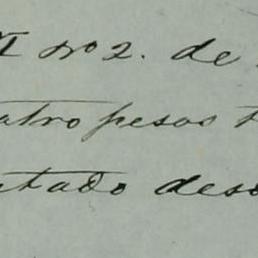 nº 2. de
atro pesos
stado des